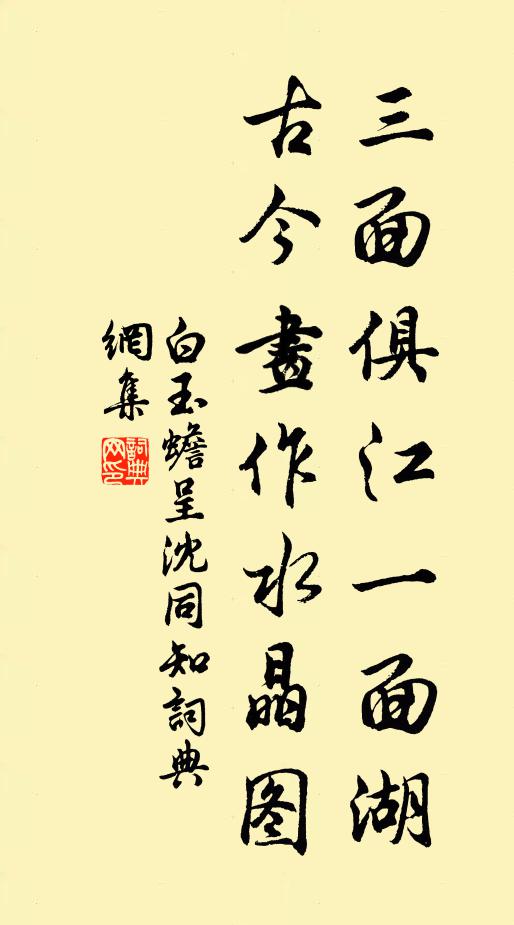 三面俱江一面湖
古今畫作水晶图
白玉蟾呈沈同知詞典
網集
詞典网印